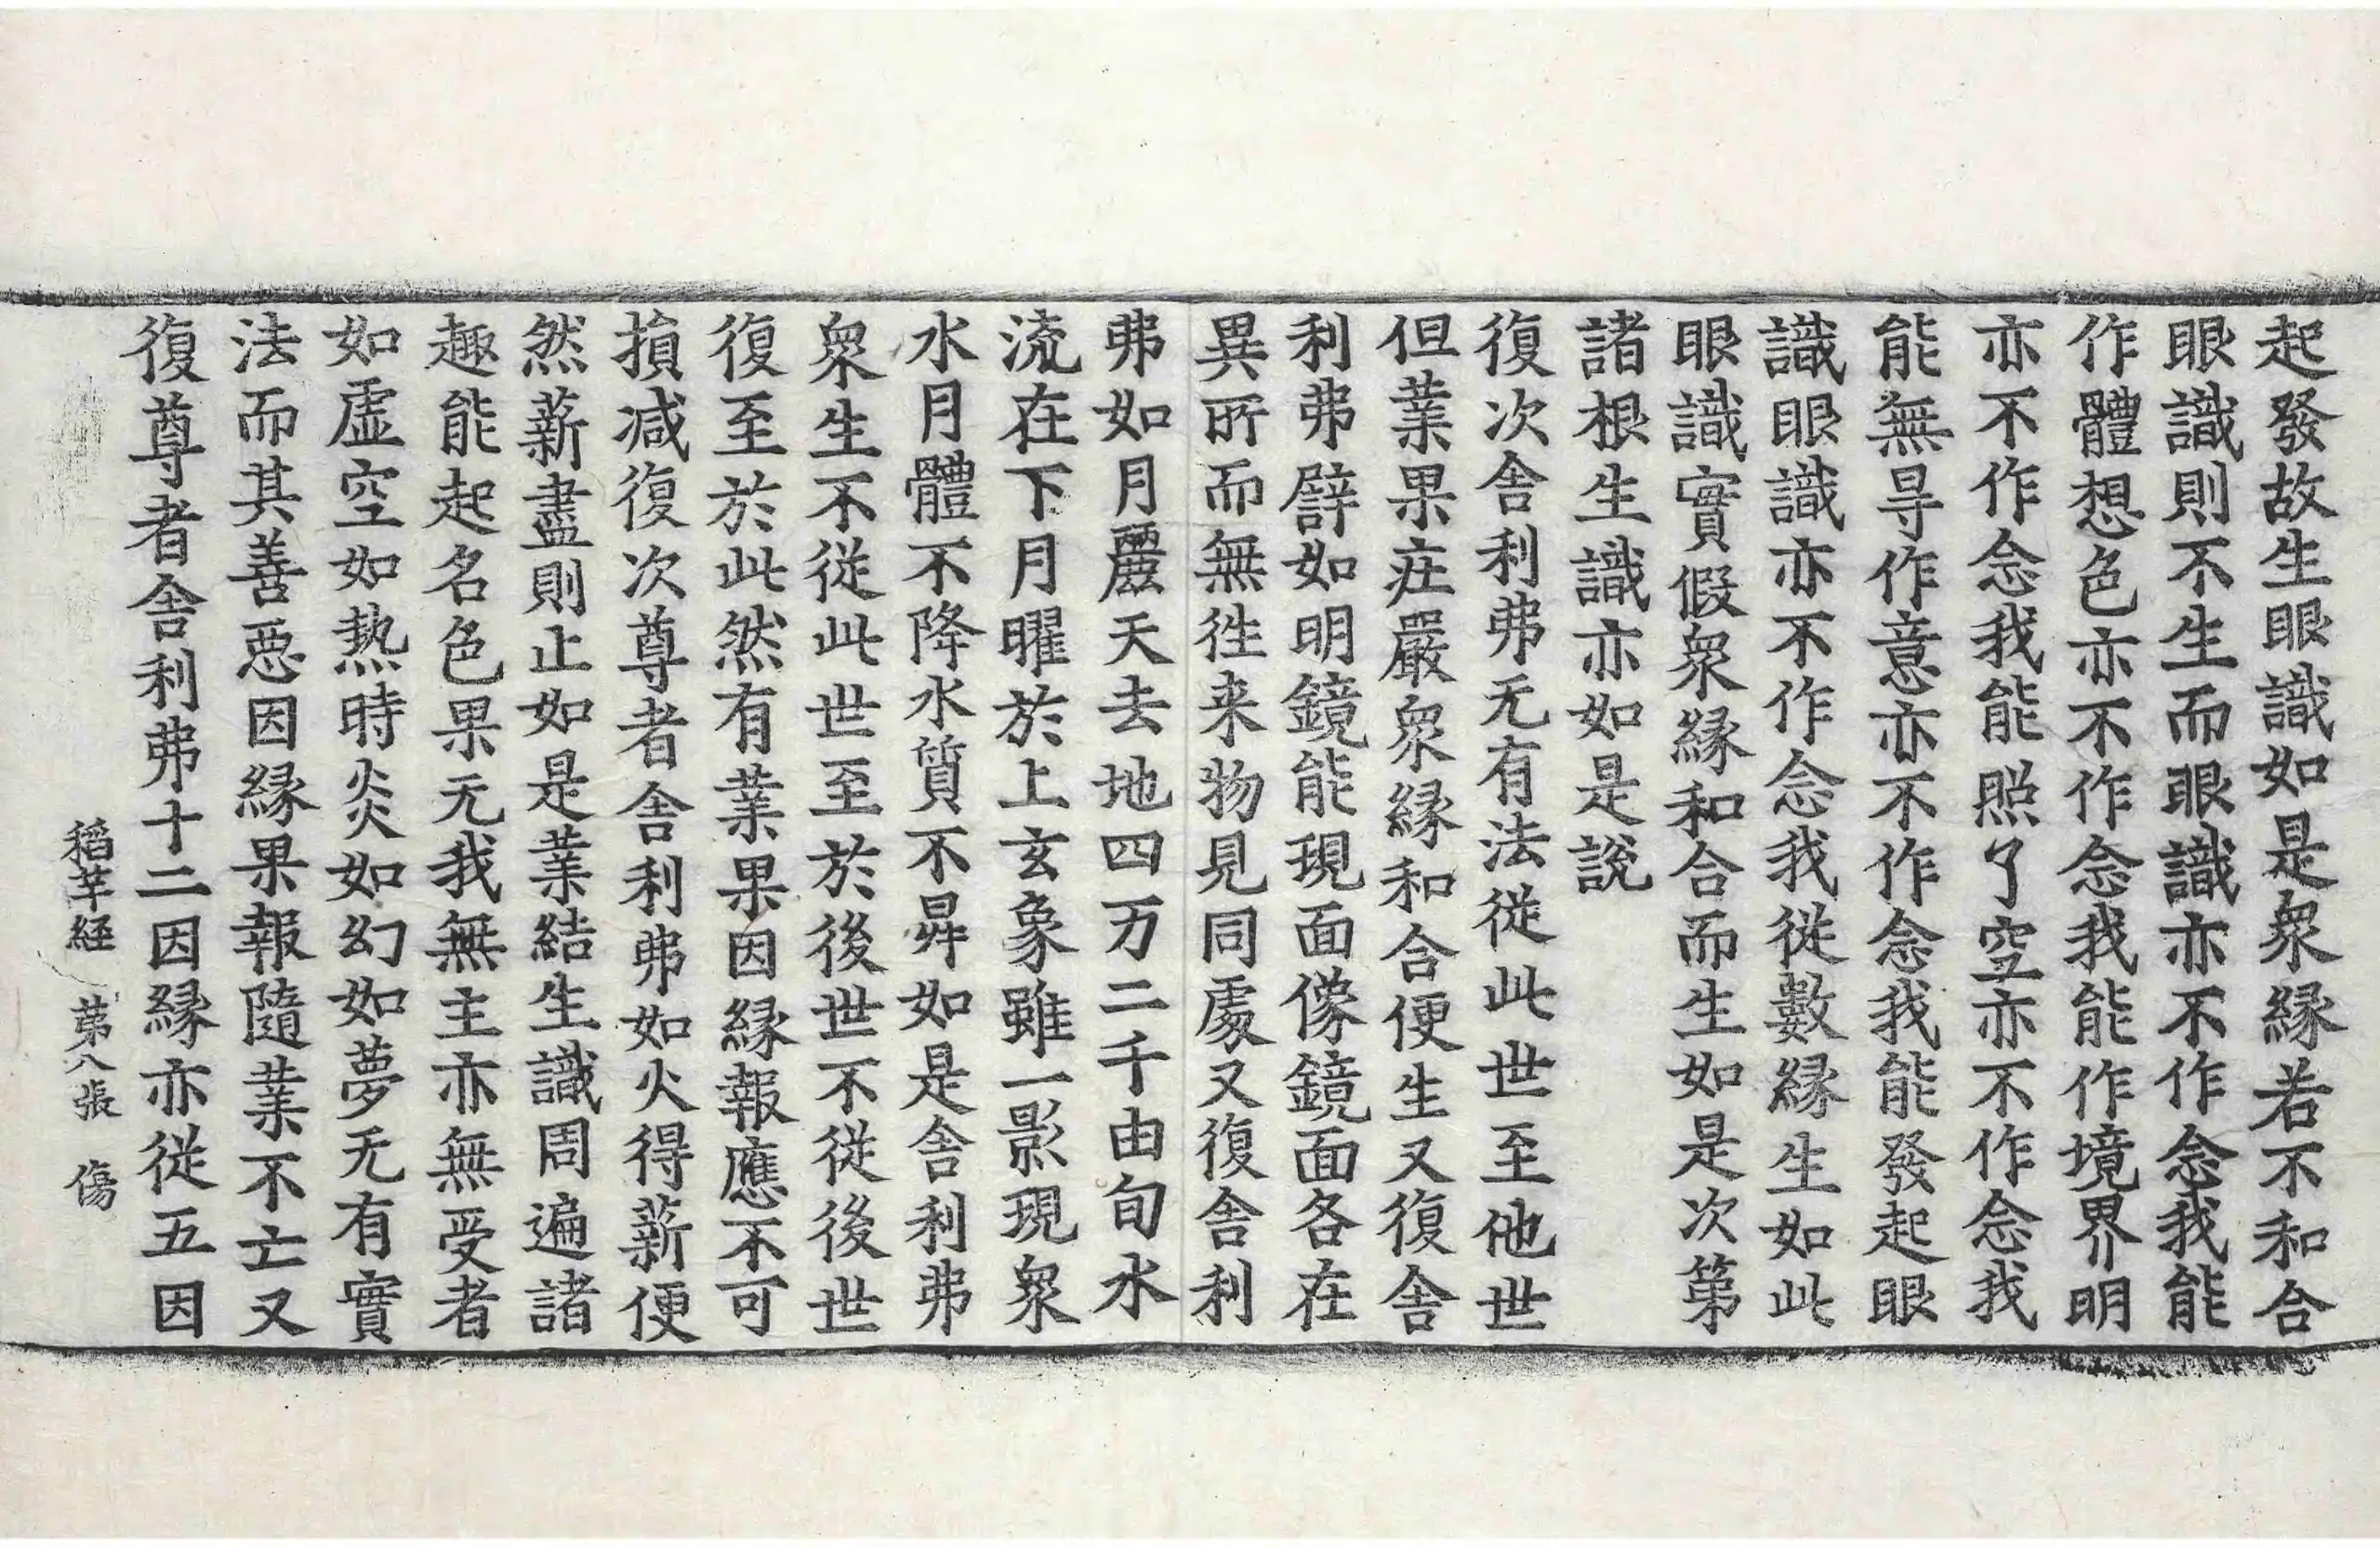 起發故生眼識如是衆縁若不和合
眼識則不生而眼識亦不作念我能
作體想色亦不作念我能作境界明
亦不作念我能照了空亦不作念我
能無㝵作意亦不作念我能發起眼
識眼識亦不作念我從數縁生如此
眼識實假衆縁和合而生如是次第
諸根生識亦如是說
復次舎利弗无有法從此世至他世
但業果㽵嚴衆縁和合便生又復舎
利弗譬如明鏡能現面像鏡面各在
異所而無徃来物見同處又復舎利
弗如月麗天去地四万二千由旬水
流在下月曜於上玄象雖一影現衆
水月體不降水質不昇如是舎利弗
衆生不從此世至於後世不從後世
復至於此然有業果因縁報應不可
損减復次尊者舎利弗如火得薪便
然薪盡則止如是業結生識周遍諸
趣能起名色果无我無主亦無受者
如虛空如熱時炎如幻如夢无有實
法而其善惡因縁果報隨業不亡又
復尊者舎利弗十二因縁亦從五因
稻芉經　苐八張　傷